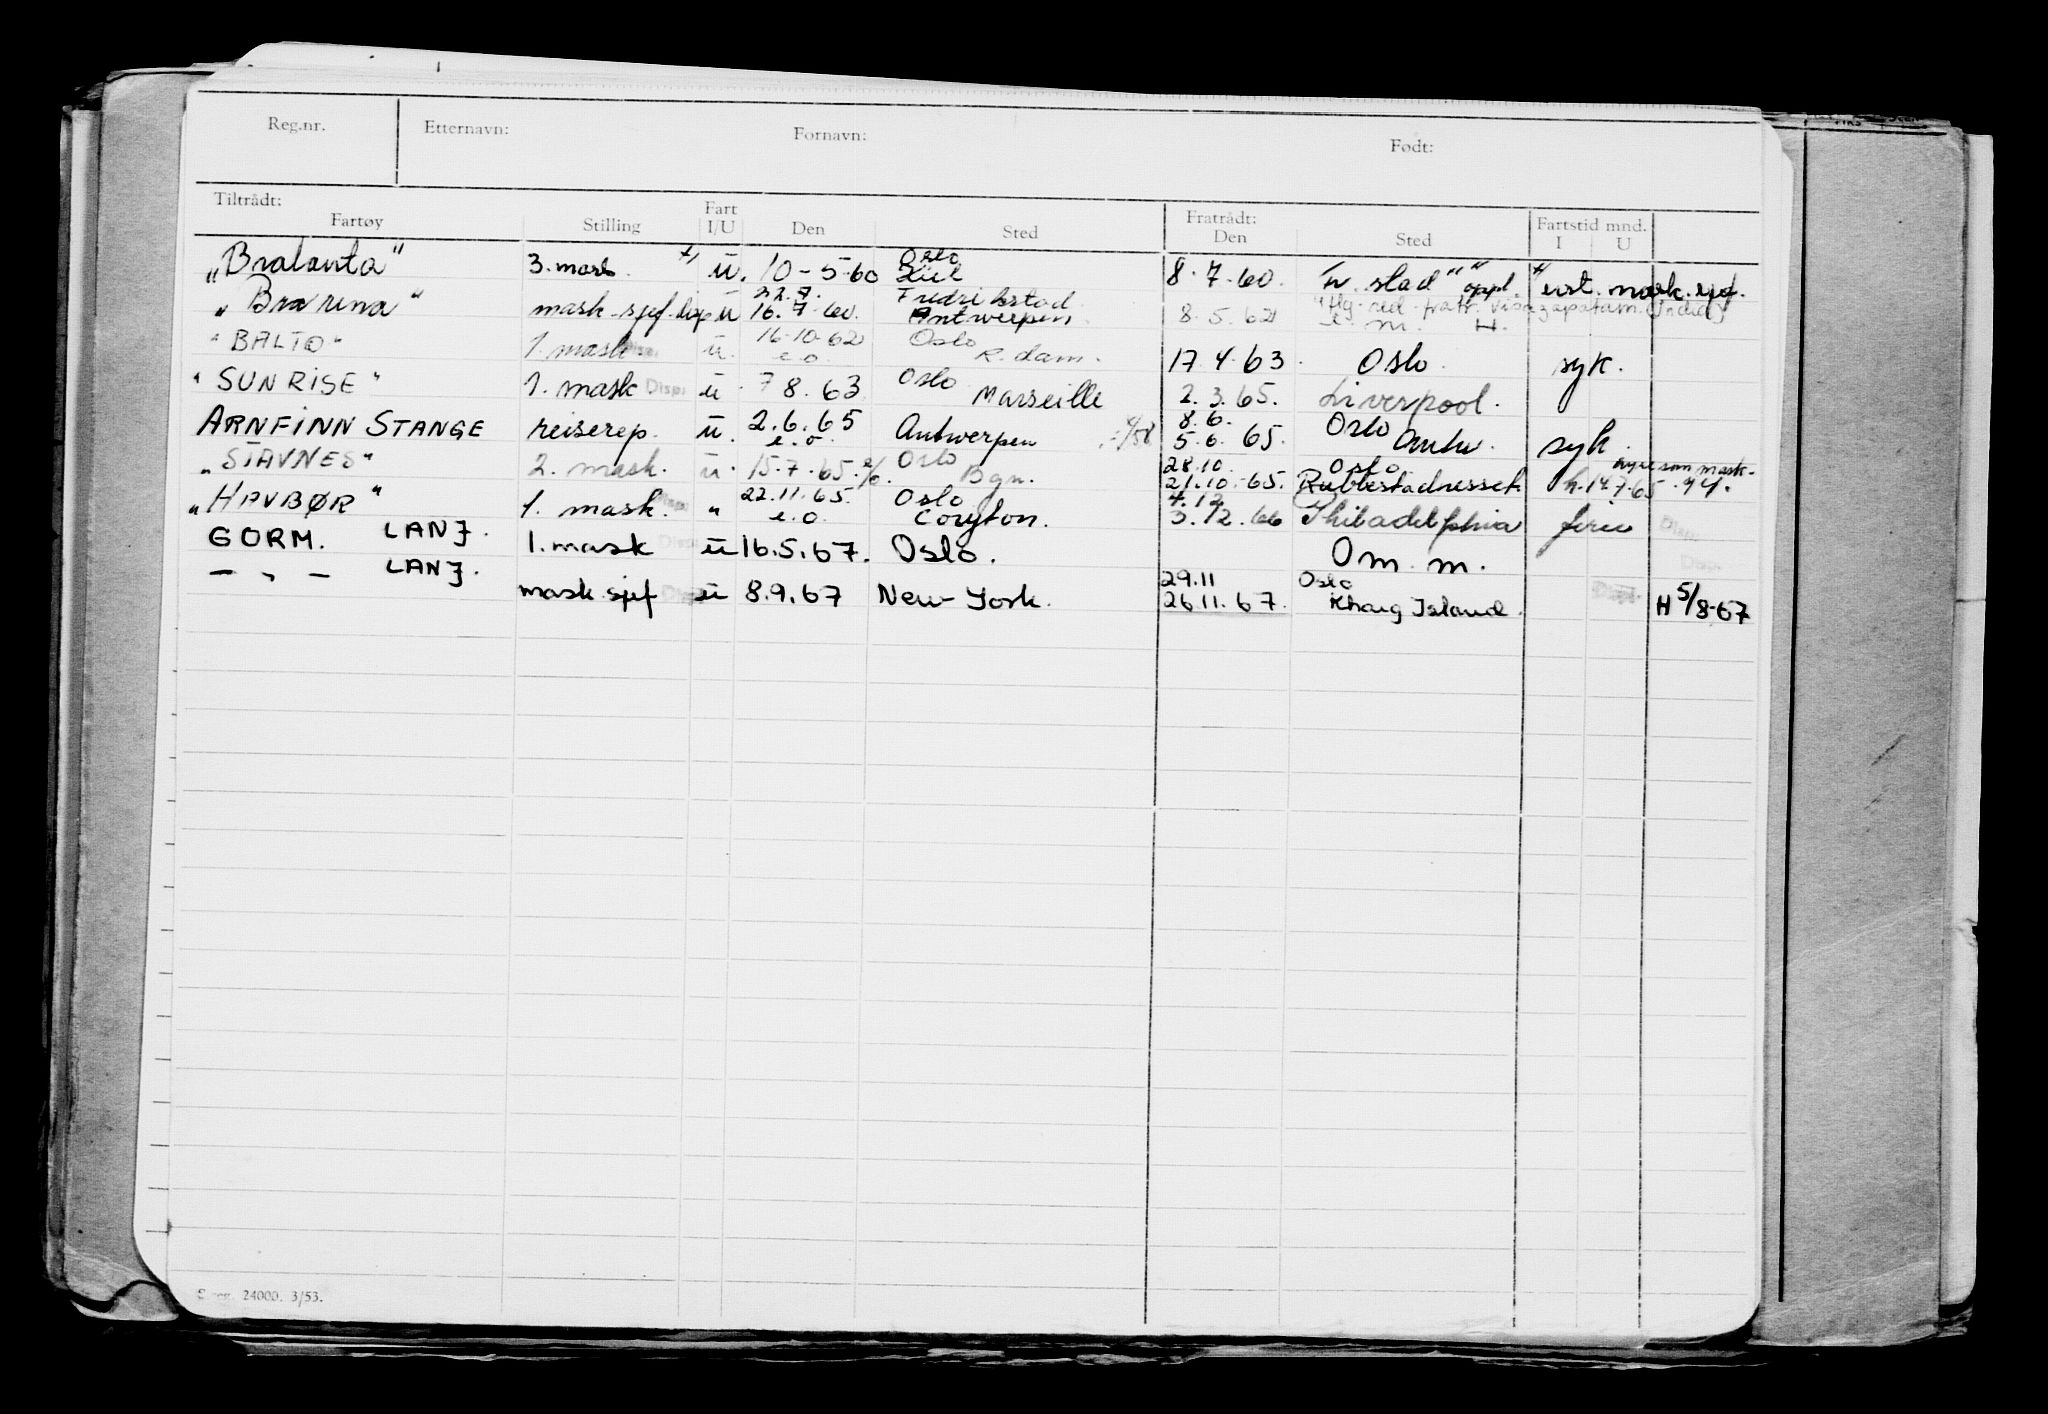 Reg.nr. Etternavn: Fornavn: Født:
Tiltrådt: Fart Fratrådt: Fartstid mnd.
Fartøy Stilling I/U Den Sted Den Sted I U
"Bralanta" 3. mask. +) u. 10-5-60 Oslo Kiel 8.7.60. Fr. stad " " oppl. +) mask. sjef.
"Bra rena" mask. sjef. disp u 22.7. 16.7.60. Fredrikstad Antwerpen. 8.5.62 e. m. H.
"BALTO" 1. mask Disp. u. 16-10-62 e.o. Oslo R.dam. 17.4.63. Oslo. syk.
"SUNRISE" 1. mask Disp. u. 7 8. 63 Oslo Marseille 2.3.65. Liverpool.
ARNFINN STANGE reiserep. u. 2.6.65 e.o. Antwerpen 8.6. 5.6. 65. Oslo Antw. syk.
"STAVNES" 2. mask. u. 15.7.65. e/o. Oslo Bgn. 28.10. 21.10.65. Oslo Rubbestadnessek h. 14.7.65
"HAVBØR" 1. mask. Disp. " 22.11.65. e.o. Oslo Coryton. 4.12 3.12.66 Philadelphia ferie Disp.
GORM. LANJ. 1. mask Disp. u 16.5.67. Oslo. O m. m. Disp.
— " — LANJ. mask.sjef Disp. u 8.9.67 New York. 29.11 26.11.67. Oslo Kharg Island. Disp. H 5/8-67
S.reg. 24000. 3/53.